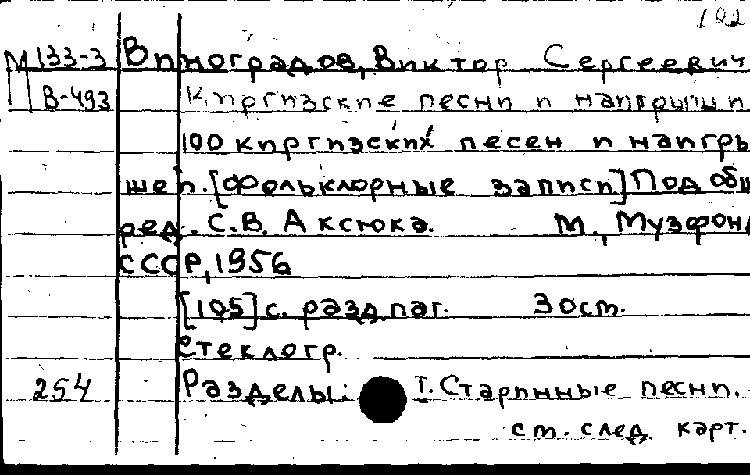 102
М 133-3 Виноградов, Виктор Сергеевич
В-493 Киргизские песни и наигрыши
100 киргизских песен и наигры
шей. [Фольклорные записи] Под общ
ред. С.В. Аксюка. М., Музфонд
СССР, 1956
[105] с. разд. паг. 30 ст.
Стеклогр.
254 Разделы: I. Старинные песни.
см. след. карт.